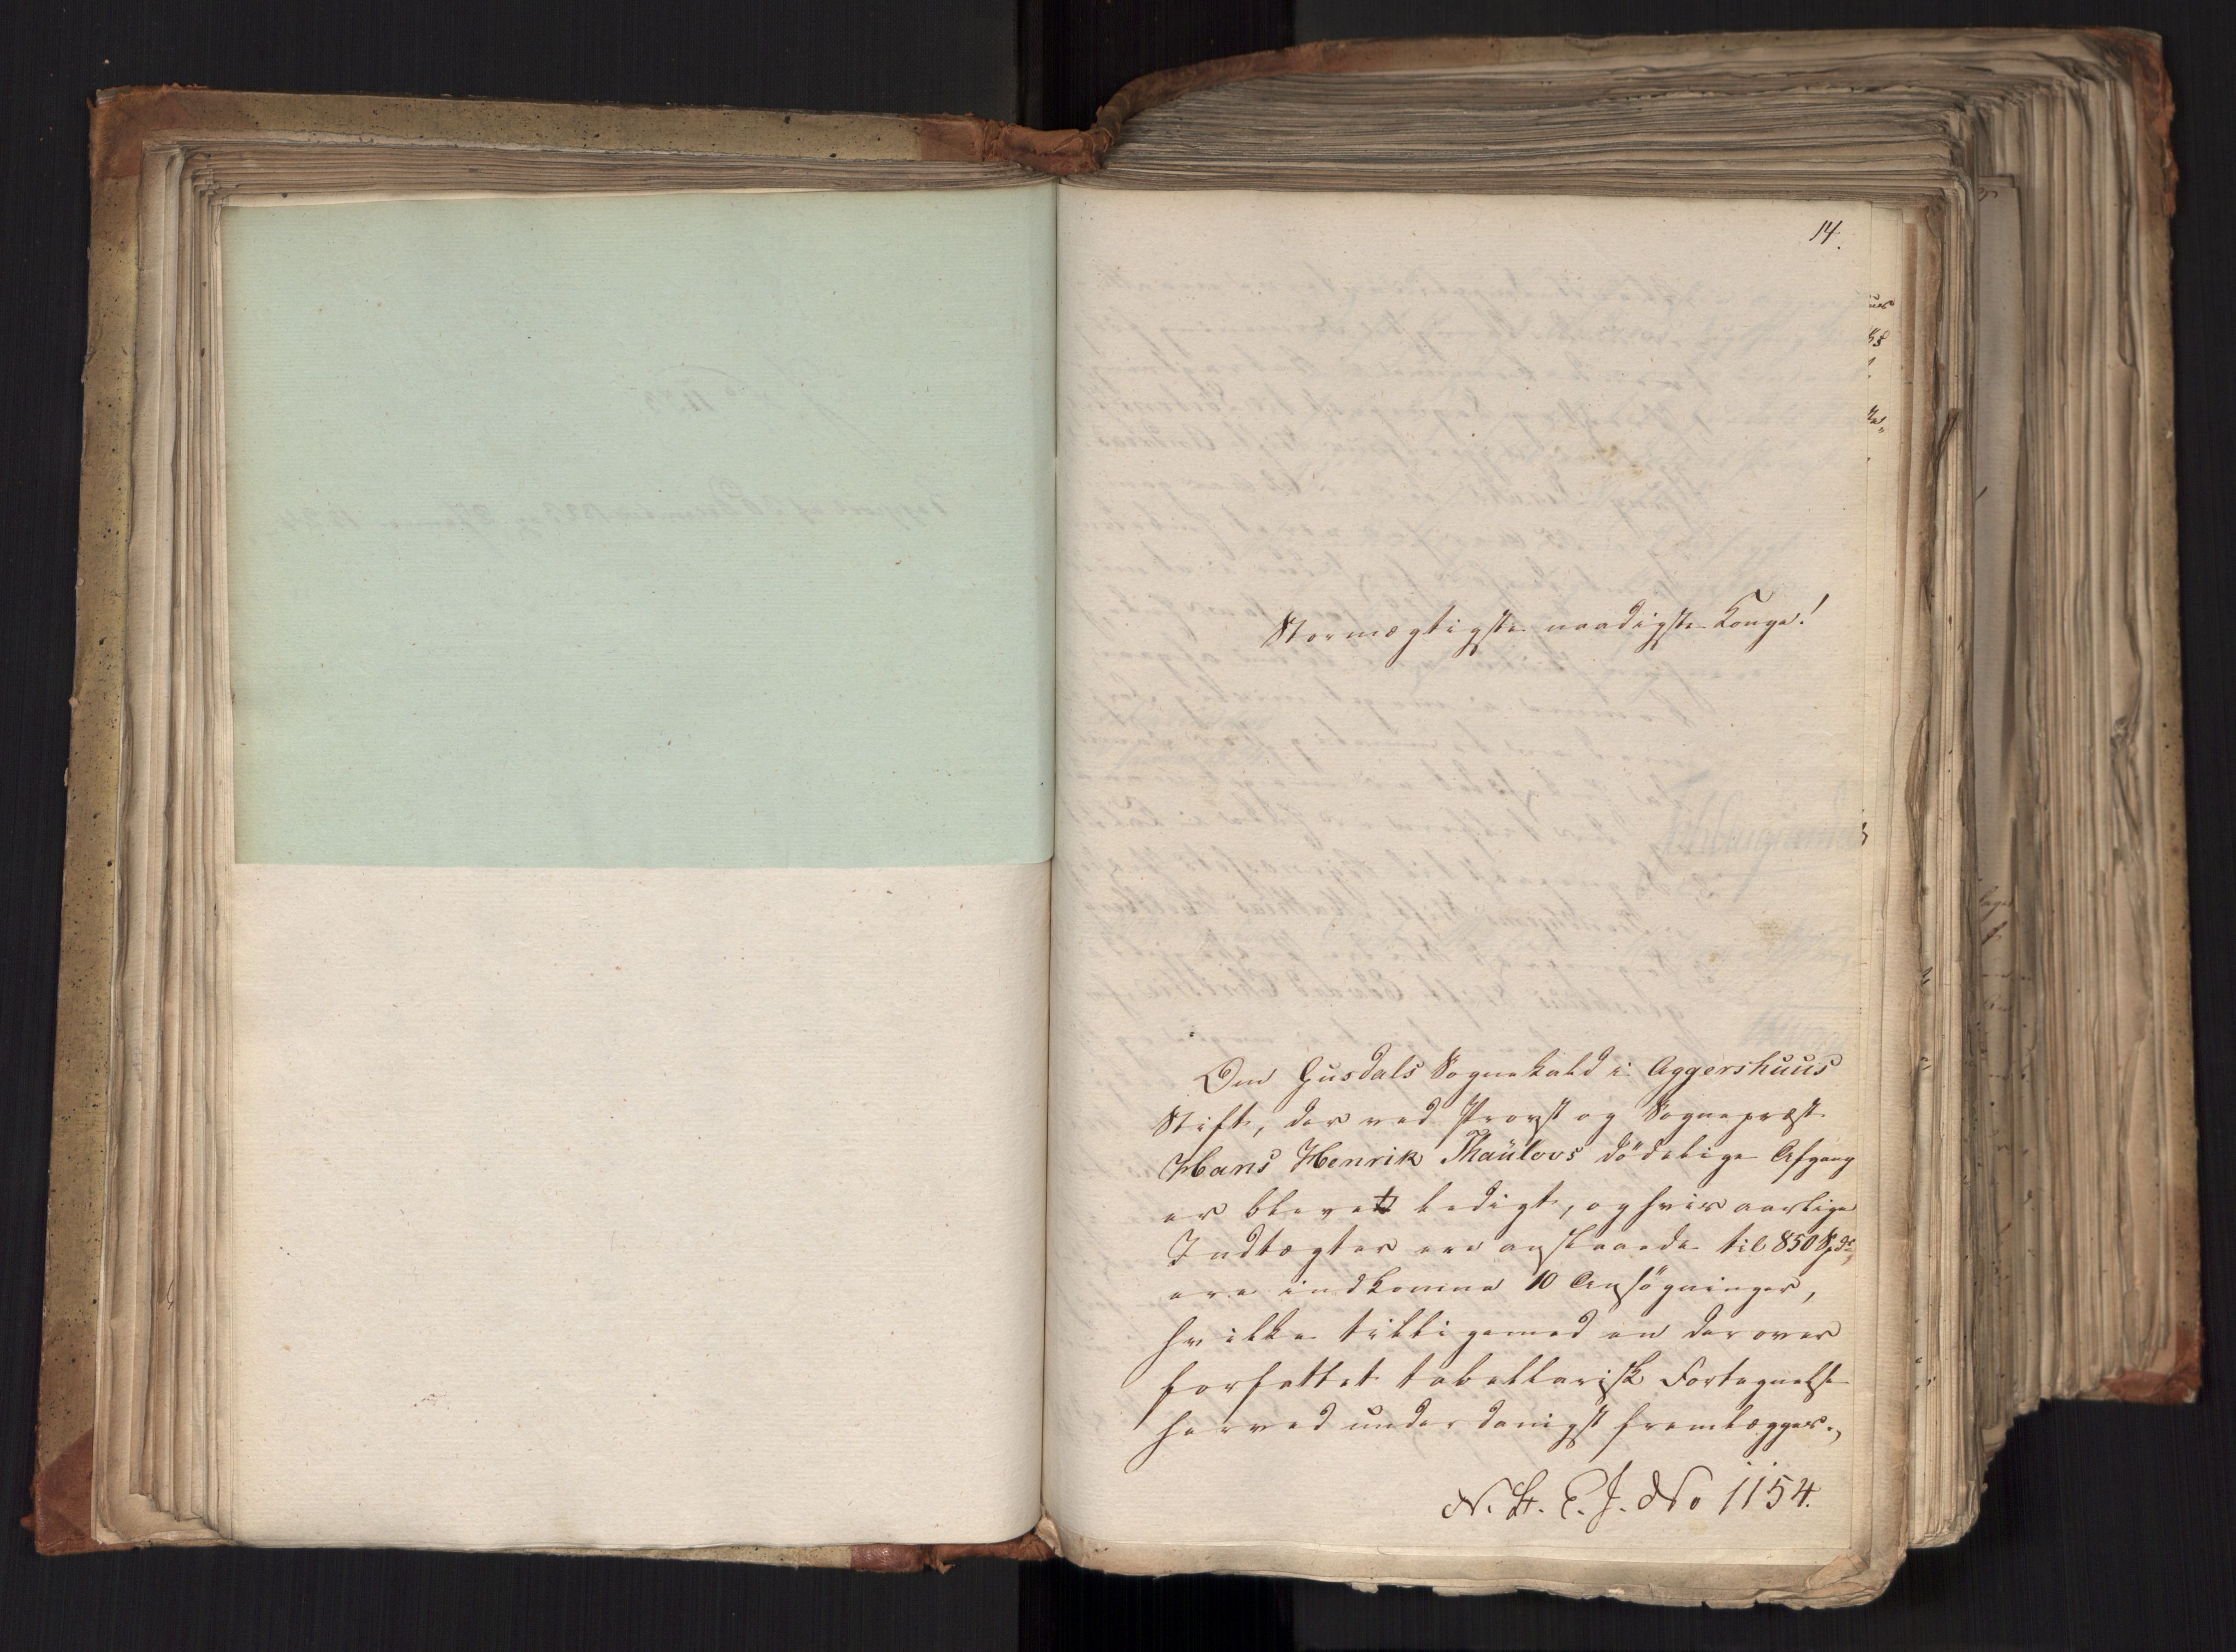 14.
Stormægtigste naadigste Konge!
Om Gusdals Sognekald i Aggershuus
Stift, der ved Provst og Sognepræst
Hans Henrik Thaülovs dödelige Afgang
er blevet ledigt, og hvis aarlige
Indtægter ere anslaaede til 850 Spdr,
ere indkomne 10 Ansögninger,
hvilke tilligemed en derover
forfattet tabellarisk Fortegnelse
herved underdanigst fremlægges.,
N. R. E. J. No 1154.